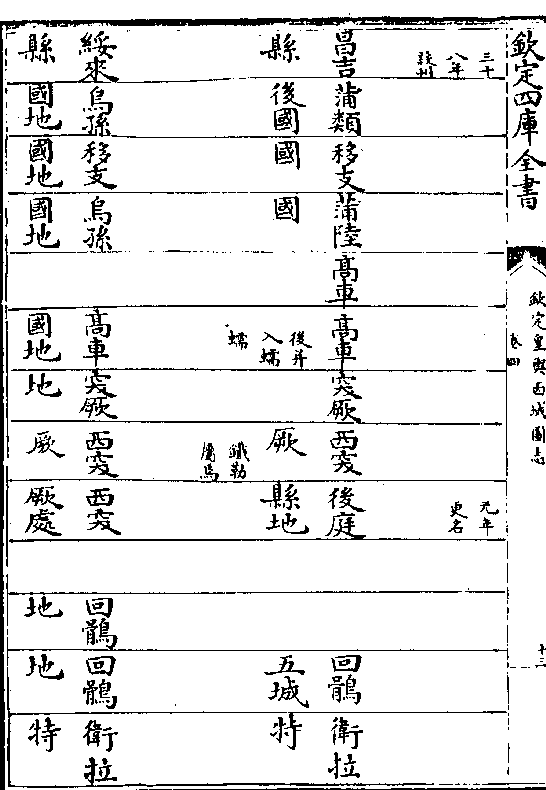 欽定四庫全書
欽定皇輿西域圖志
卷四
十三
三十
八年
設州
元年
更名
昌吉
縣
蒲類
後國
移支
國
蒲陸
國
高車
高車
後并
入蠕
蠕
突厥
西突
厥
鐵勒
屬焉
後庭
縣地
回鶻
五城
衛拉
特
綏來
縣
烏孫
國地
移支
國地
烏孫
國地
高車
國地
突厥
地
西突
厥
西突
厥處
回鶻
地
回鶻
地
衛拉
特